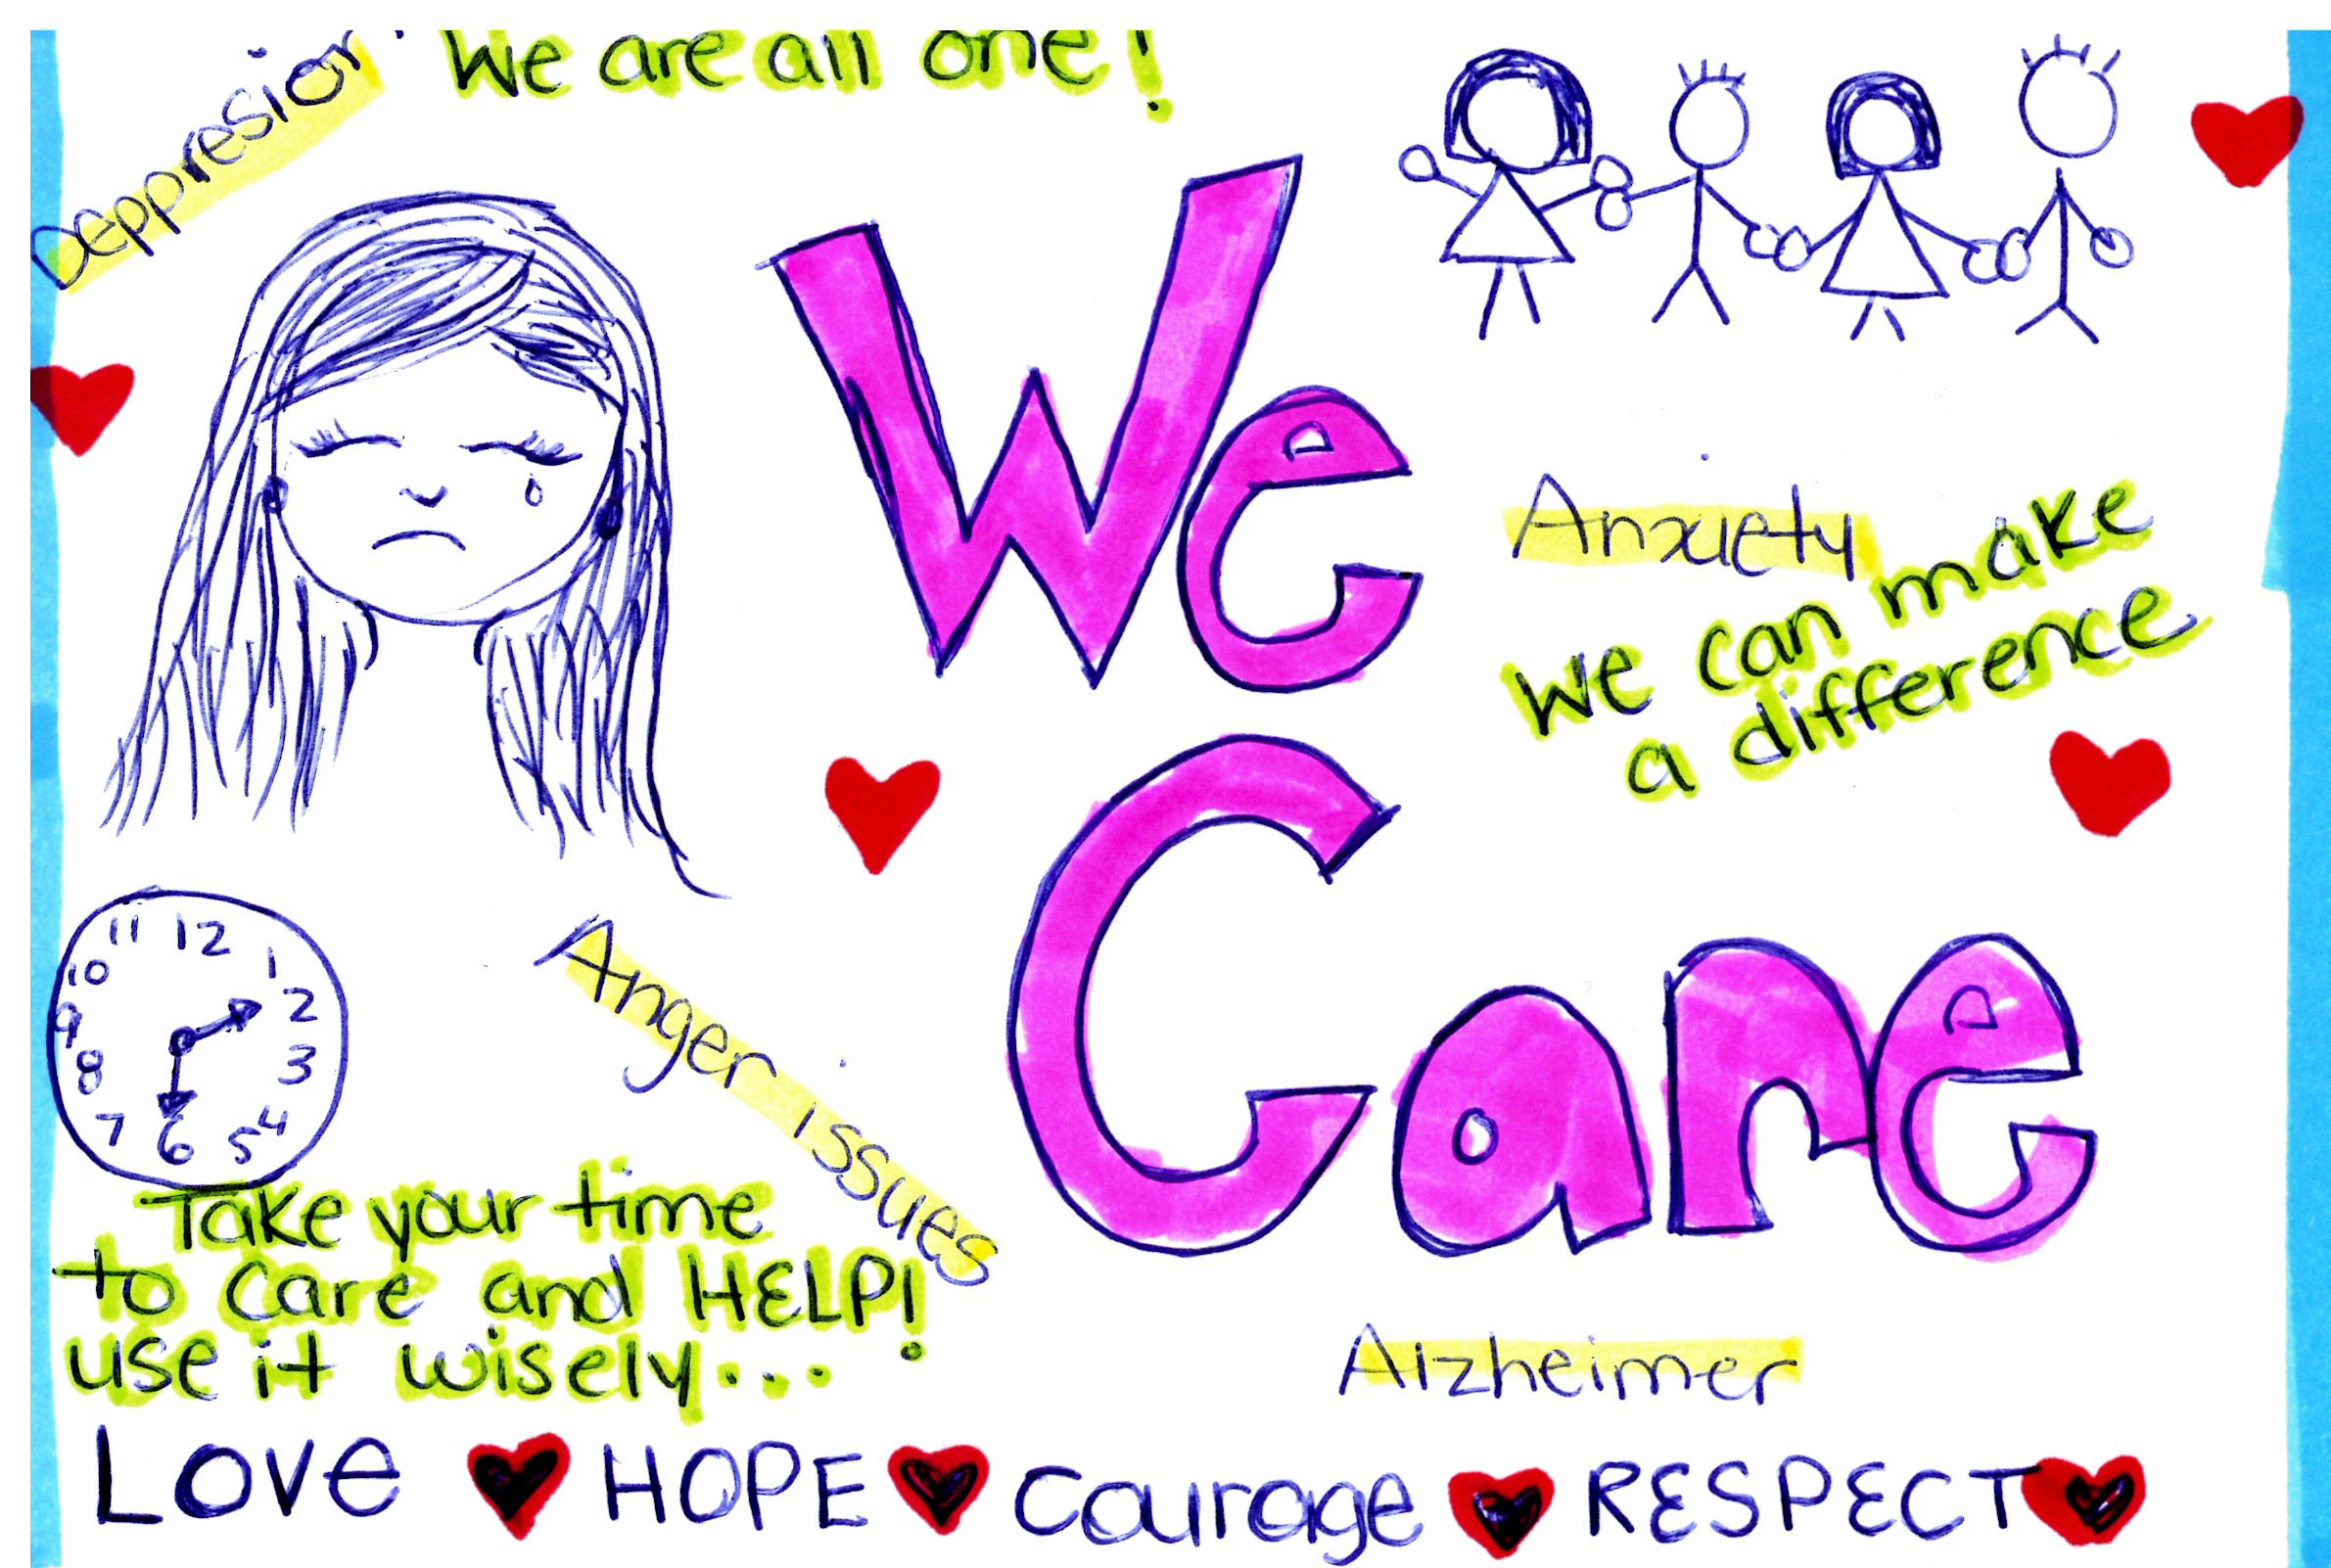 Deppresion
We are all one!
We
Care
Anxiety
We can make
a difference
11 12 1 2 3 4 5 6 7 8 9 10
Anger issues
Take your time
to care and HELP!
use it wisely...
Alzheimer
Love HOPE Courage RESPECT